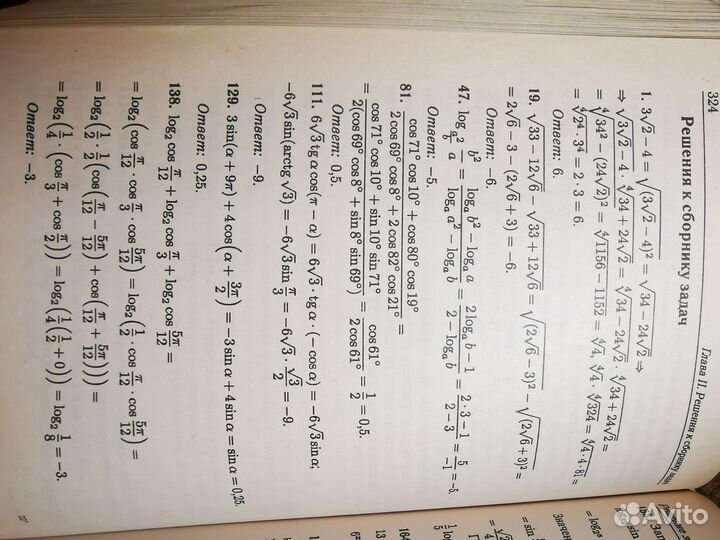 324
Глава II. Решения к сборнику задач
Решения к сборнику задач
1. 3√2 − 4 = √((3√2 − 4)²) = √(34 − 24√2) ⇒
⇒ √(3√2 − 4) · ⁴√(34 + 24√2) = ⁴√(34 − 24√2) · ⁴√(34 + 24√2) =
= ⁴√(34² − (24√2)²) = ⁴√(1156 − 1152) = ⁴√4, ⁴√4 · ⁴√324 = ⁴√(4 · 4 · 81) =
= ⁴√(2⁴ · 3⁴) = 2 · 3 = 6.
Ответ: 6.
19. √(33 − 12√6) − √(33 + 12√6) = √((2√6 − 3)²) − √((2√6 + 3)²) =
= 2√6 − 3 − (2√6 + 3) = −6.
Ответ: −6.
47. log_(a²/b) (b²/a) = (log_a b² − log_a a)/(log_a a² − log_a b) = (2 log_a b − 1)/(2 − log_a b) = (2 · 3 − 1)/(2 − 3) = 5/−1 = −5.
Ответ: −5.
81. (cos 71° cos 10° + cos 80° cos 19°)/(2 cos 69° cos 8° + 2 cos 82° cos 21°) =
= (cos 71° cos 10° + sin 10° sin 71°)/(2(cos 69° cos 8° + sin 8° sin 69°)) = cos 61°/(2 cos 61°) = 1/2 = 0,5.
Ответ: 0,5.
111. 6√3 tg α cos(π − α) = 6√3 · tg α · (−cos α) = −6√3 sin α;
−6√3 sin(arctg √3) = −6√3 sin π/3 = −6√3 · √3/2 = −9.
Ответ: −9.
129. 3 sin(α + 9π) + 4 cos(α + 3π/2) = −3 sin α + 4 sin α = sin α = 0,25.
Ответ: 0,25.
138. log₂ cos π/12 + log₂ cos π/3 + log₂ cos 5π/12 =
= log₂(cos π/12 · cos π/3 · cos 5π/12) = log₂(1/2 · cos π/12 · cos 5π/12) =
= log₂(1/2 · 1/2 (cos(π/12 − 5π/12) + cos(π/12 + 5π/12))) =
= log₂(1/4 · (cos π/3 + cos π/2)) = log₂(1/4(1/2 + 0)) = log₂ 1/8 = −3.
Ответ: −3.
Значени
Avito